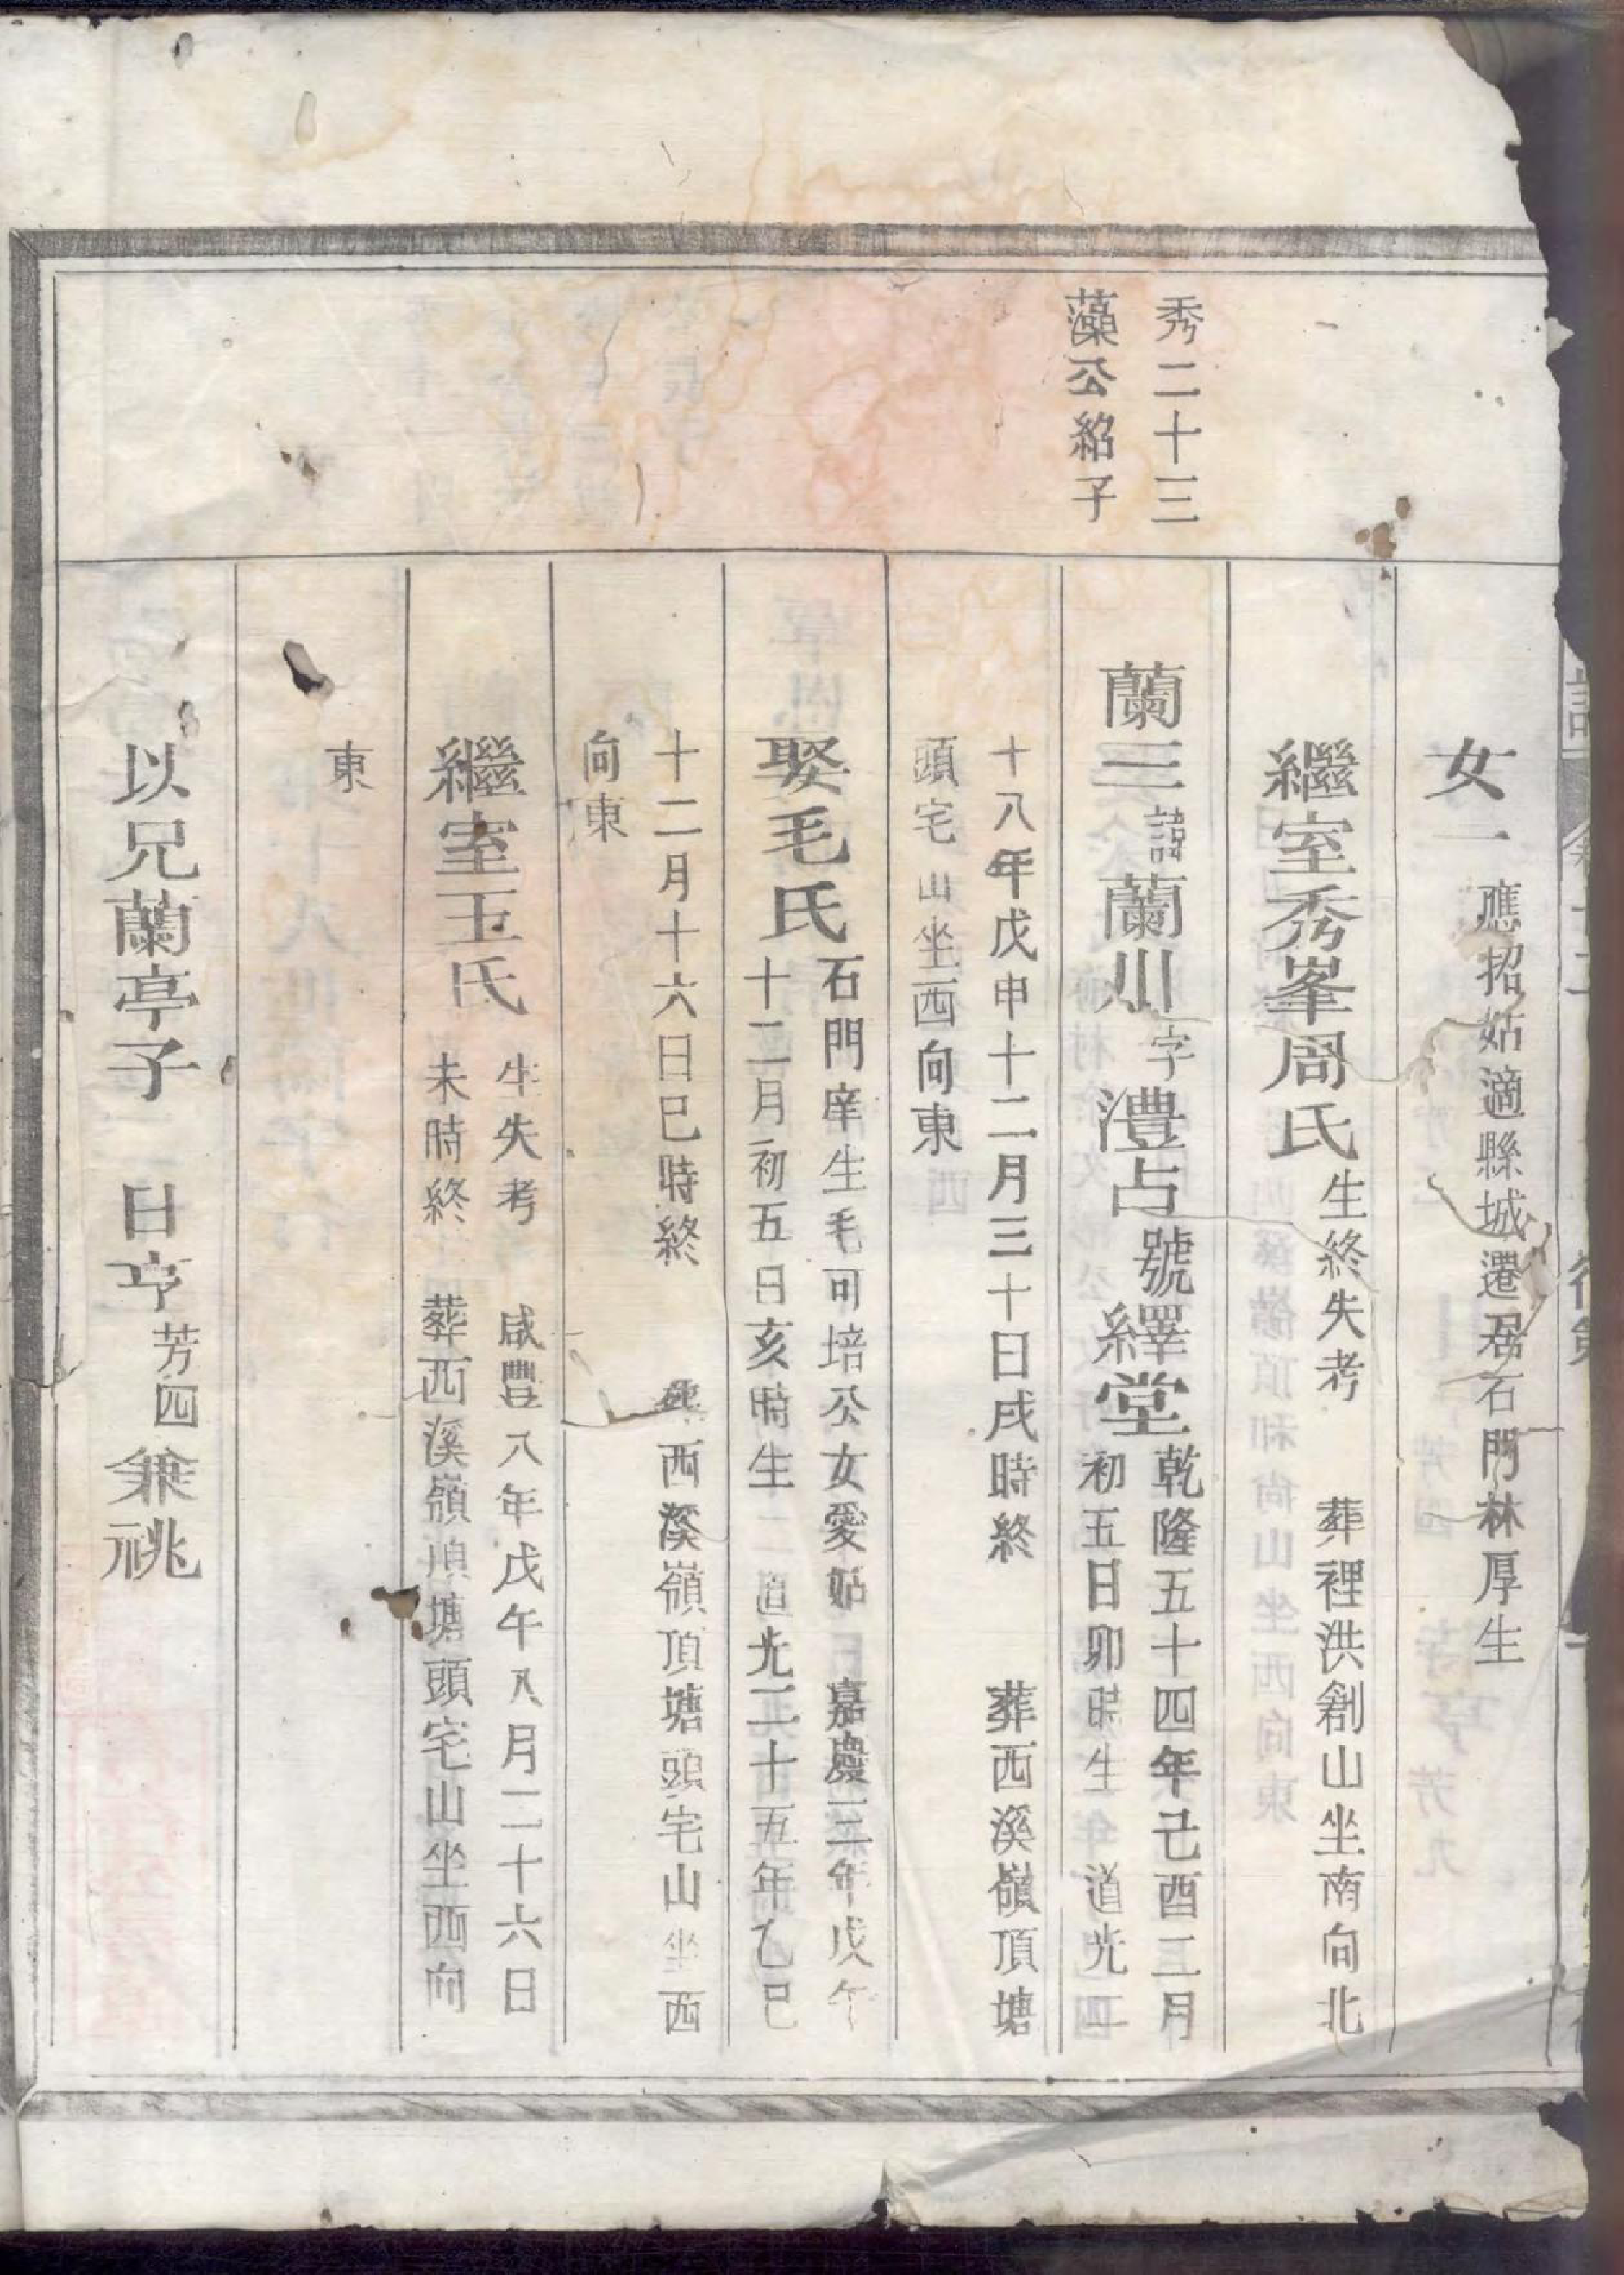 女一應招姑適縣城遷居石門林厚生
繼室秀峯周氏生終失考　葬裡洪創山坐南向北
秀二十三
藻公紹子
蘭三諱蘭川字澧占號繹堂乾隆五十四年己酉二月
初五日卯時生　道光二
十八年戊申十二月三十日戌時終　葬西溪嶺頂塘
頭宅山坐西向東
娶毛氏石門庠生毛可培公女愛姑　嘉慶三年戊午
十二月初五日亥時生　道光二十五年乙巳
十二月十六日巳時終　葬西溪嶺頂塘頭宅山坐西
向東
繼室王氏生失考　咸豐八年戊午八月二十六日
未時終　葬西溪嶺頂塘頭宅山坐西向
東
以兄蘭亭子　日亨芳四兼祧